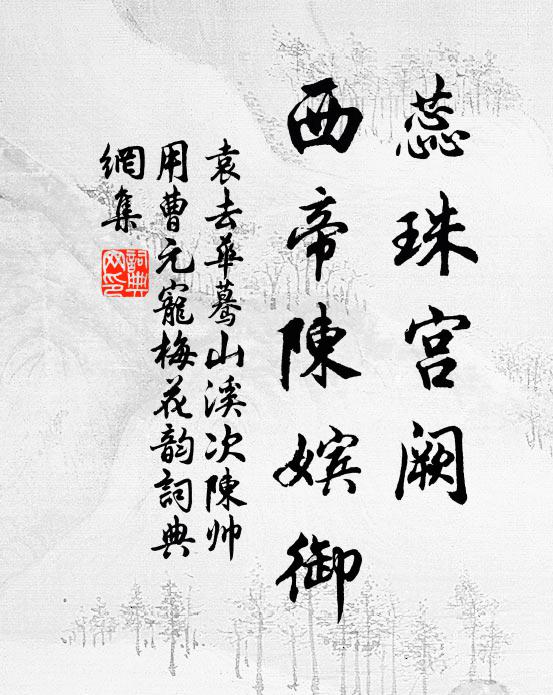 蕊珠宫阙
西帝陳嬪御
袁去华蓦山溪次陳帅
用曹元寵梅花韵詞典
網集
詞典
网印